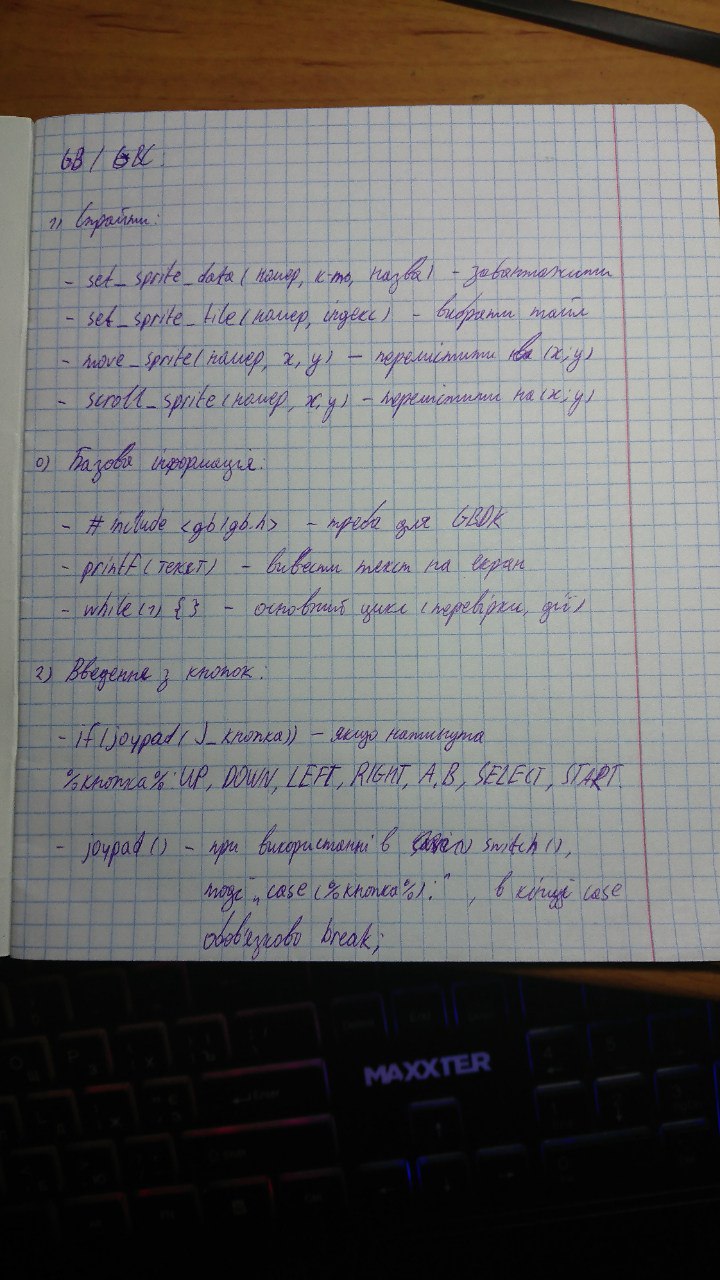 GB / GBC:
1) Спрайти:
- set_sprite_data(номер, к-ть, назва) - завантажити
- set_sprite_tile(номер, індекс) - вибрати тайл
- move_sprite(номер, x, y) — перемістити в (x;y)
- scroll_sprite(номер, x, y) - перемістити на (x;y)
0) Базова інформація:
- #include <gb/gb.h> - треба для GBDK
- printf(текст) - вивести текст на екран
- while(1) {} - основний цикл (перевірки, дії)
2) Введення з кнопок:
- if(joypad(J_кнопка)) - якщо натиснута
%кнопка%: UP, DOWN, LEFT, RIGHT, A, B, SELECT, START.
- joypad() - при використанні в switch(),
тоді „case(%кнопка%):", в кінці case
обов'язково break;
MAXXTER
Enter